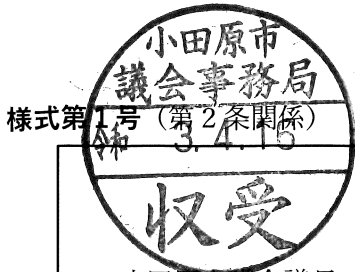 小田原市
議会事務局
様式第1号（第2条関係）
令和 3.4.15
収受